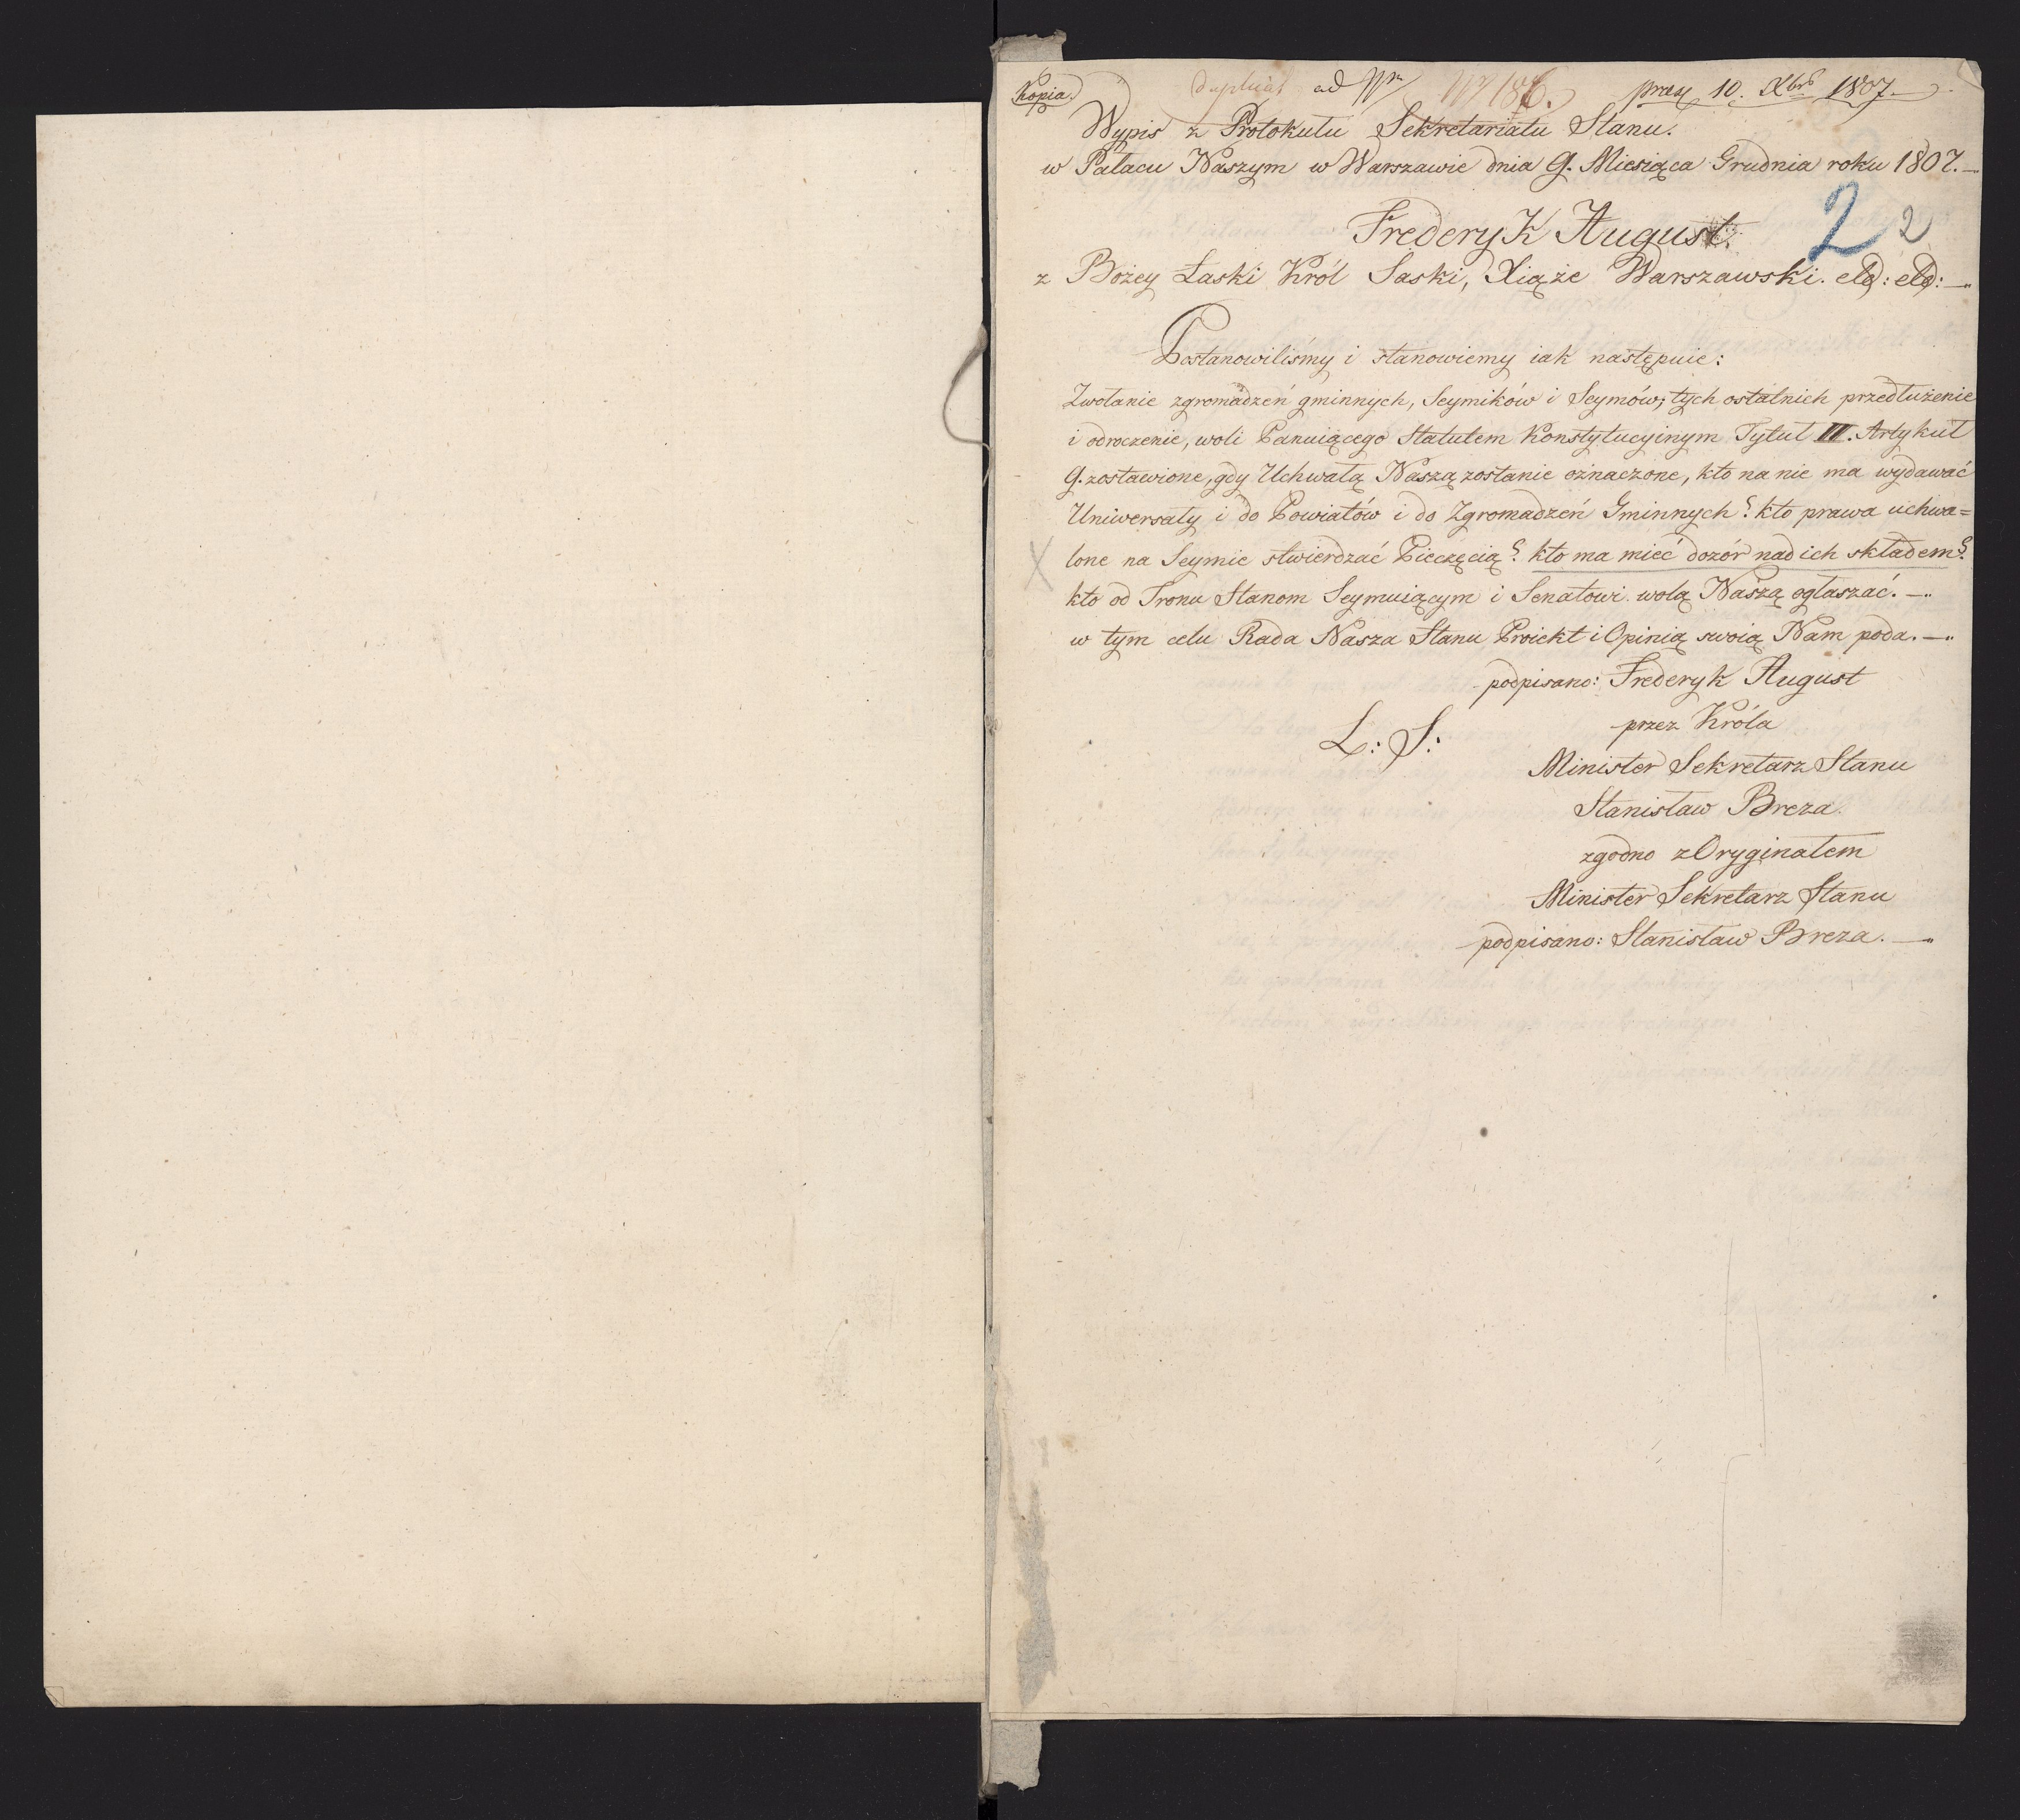 Kopia. duplicat ad N 186. præs 10. Xbris 1807.
Wypis z Protokułu Sekretariatu Stanu.
w Pałacu Naszym w Warszawie dnia 9. Miesiąca Grudnia roku 1807.
2 2
Frederyk August.
z Bożey Łaski Król Saski, Xiąże Warszawski. etc: etc:
Postanowiliśmy i stanowiemy iak następuie:
Zwołanie zgromadzeń gminnych, Seymików i Seymów; tych ostatnich przedłużenie
i odroczenie, woli Panuiącego Statutem Konstytucyinym Tytuł III. Artykuł
9. zostawione, gdy Uchwałą Naszą zostanie oznaczone, kto na nie ma wydawać
Uniwersały i do Powiatów i do Zgromadzeń Gminnych? kto prawa uchwa=
lone na Seymie stwierdzać Pieczęcią? kto ma mieć dozór nad ich składem?
kto od Tronu Stanom Seymuiącym i Senatowi wolą Naszą ogłaszać. —
w tym celu Rada Nasza Stanu Proiekt i Opinią swoią Nam poda. —
podpisano: Frederyk August
L: S: przez Króla
Minister Sekretarz Stanu
Stanisław Breza.
zgodno z Oryginałem
Minister Sekretarz Stanu
podpisano: Stanisław Breza. —